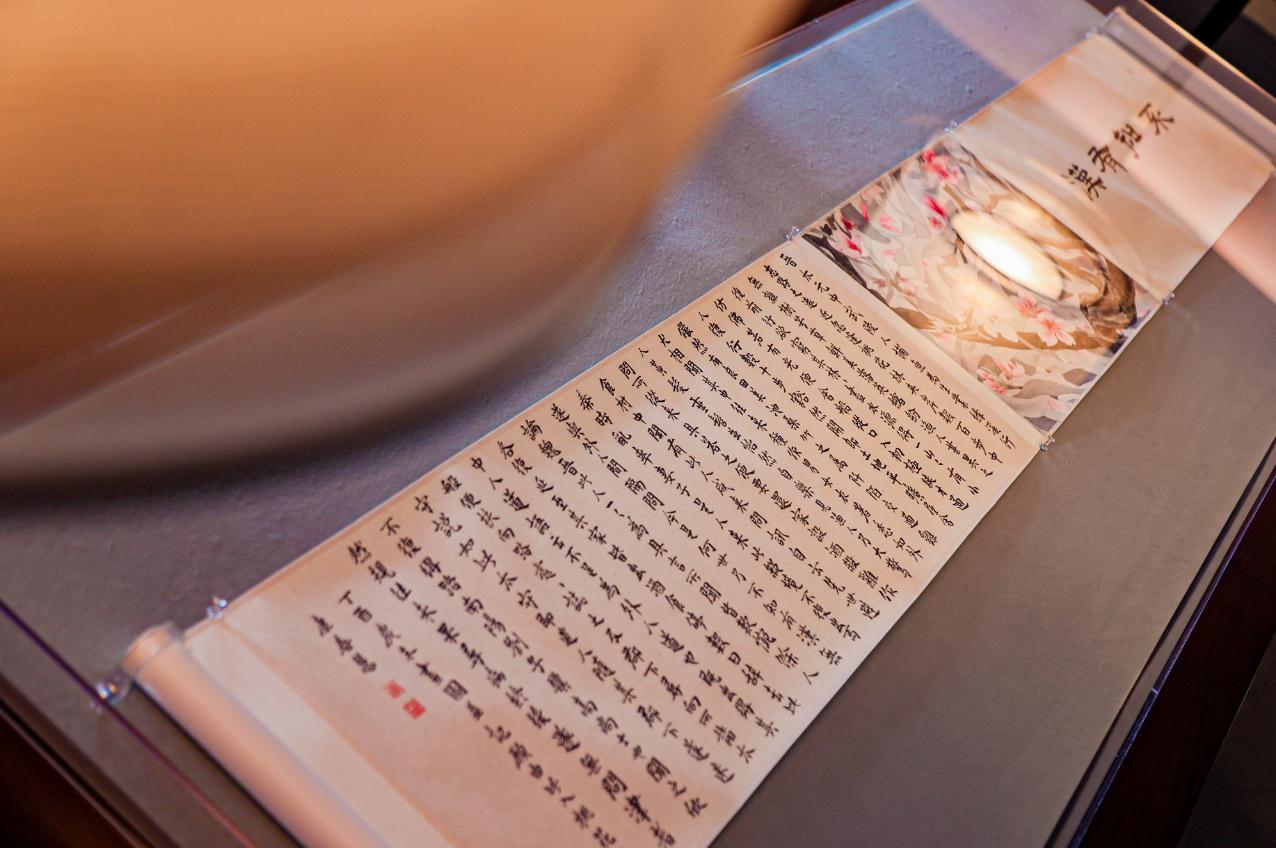 不知有漢
晋太元中武陵人捕魚為業緣溪行
忘路之遠近忽逢桃花林夾岸數百步中
無雜樹芳草鮮美落英繽紛漁人甚異之
復前行欲窮其林林盡水源得一山山有小口
仿佛若有光便舍船從口入初極狹才通
人復行數十步豁然開朗土地平曠屋舍
儼然有良田美池桑竹之屬阡陌交通雞
犬相聞其中往來種作男女衣著悉如外
人黃髮垂髫並怡然自樂見漁人乃大驚
問所從來具答之便要還家設酒殺雞作
食村中聞有此人咸來問訊自云先世避
秦時亂率妻子邑人來此絕境不復出焉
遂與外人間隔問今是何世乃不知有漢無
論魏晉此人一一為具言所聞皆歎惋餘人
各復延至其家皆出酒食停數日辭去此
中人語云不足為外人道也既出得其
船便扶向路處處誌之及郡下詣太
守說如此太守即遣人隨其往尋向所誌遂迷
不復得路南陽劉子驥高尚士也聞之欣
然規往未果尋病終後遂無問津者
丁酉歲末書 記願由此入桃花